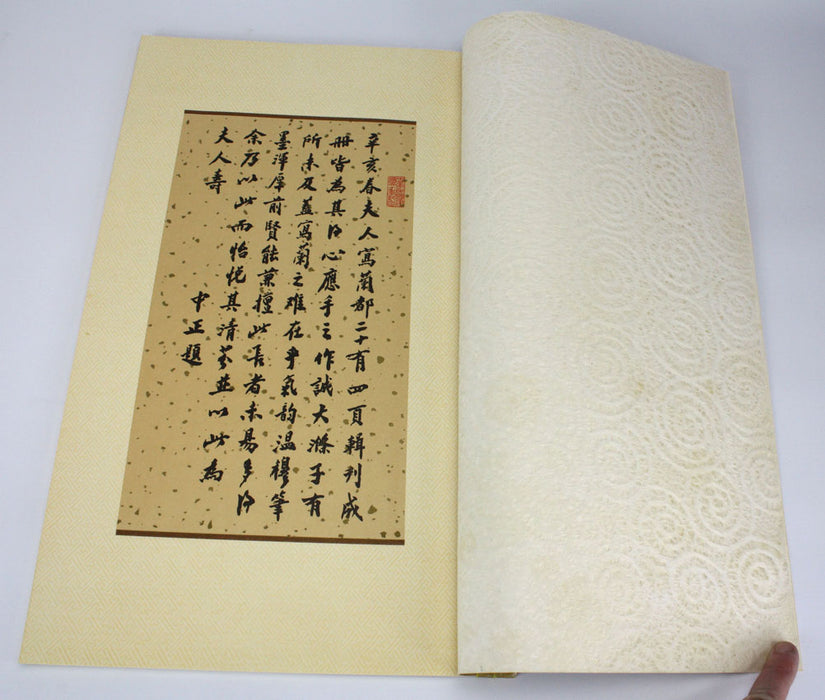 辛亥春夫人寫蘭都二十有四頁輯刊成
冊皆為其得心應手之作誠大滌子有
所未及蓋寫蘭之難在乎氣韵溫穆筆
墨渾厚前賢能兼擅此長者未易多得
余乃以此而怡悅其清芬並以此為
夫人壽
中正題